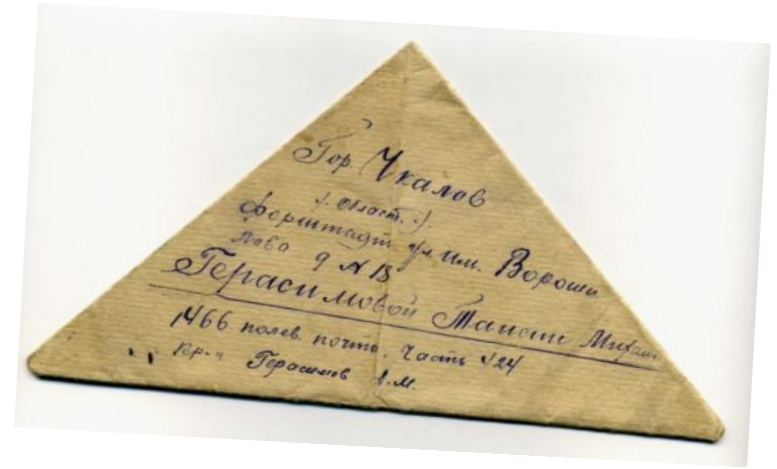 Гор. Чкалов
(. Област. .)
Форштадт ул. им. Вороши
лова 9
Герасимовой Таисии Михаи
1466 полев. почта. Часть 424
Кр-ц Герасимов